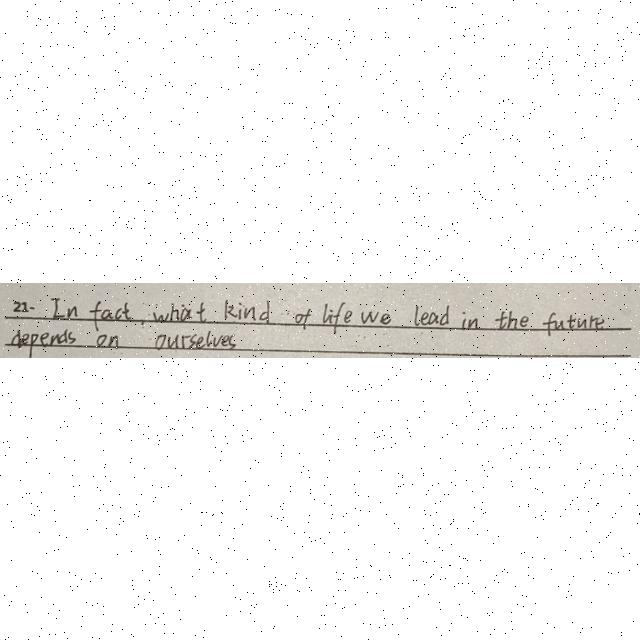 21. In fact, what kind of life we lead in the future
depends on ourselves